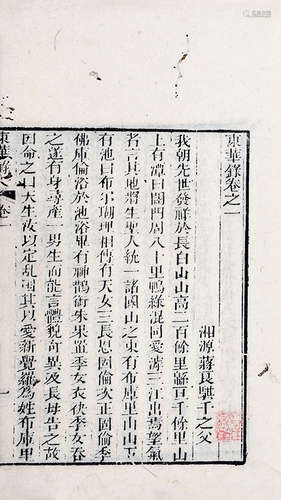 東華錄卷之一
湘源蔣良騏千之父
我朝先世發祥於長白山山高二百餘里緜亘千餘里山
上有潭曰闥門周八十里鴨綠混同愛滹三江出焉望氣
者言其地將生聖人統一諸國山之東有布庫里山山下
有池曰布尔瑚里相傳有天女三長恩固倫次正固倫季
佛庫倫浴於池浴畢有神鵲銜朱果置季女衣季女吞
之遂有身尋產一男生而能言體貌奇異及長母告之故
因命之曰天生汝以定亂國其以愛新覺羅為姓布庫
東華錄
卷一
一